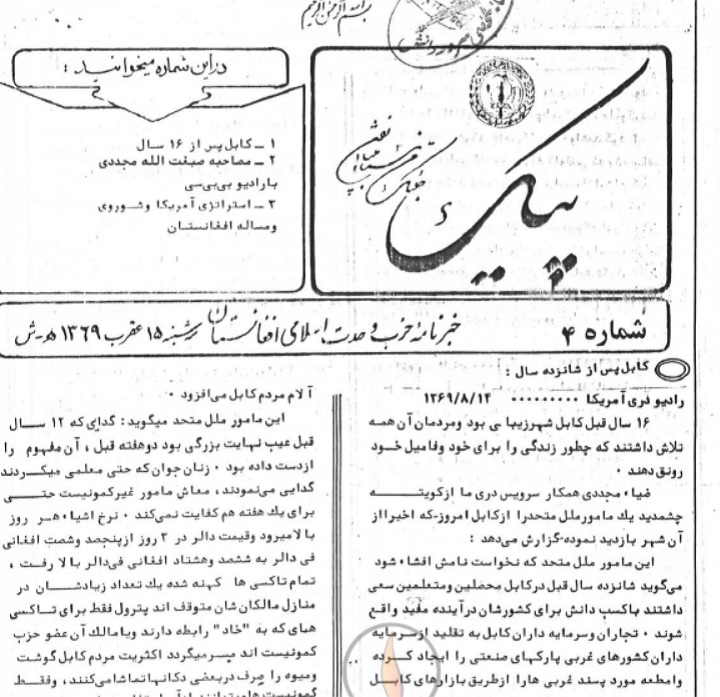 بسم الله الرحمن الرحیم
پیک
در این شماره میخوانید :
۱ ـ کابل پس از ۱۶ سال
۲ ـ مصاحبه صبغت الله مجددی
با رادیو بی بی سی
۳ ـ استراتژی آمریکا وشوروی
ومساله افغانستان
شماره ۴
خبرنامه حزب وحدت اسلامی افغانستان سه شنبه ۱۵ عقرب ۱۳۶۹ هـ ش
کابل پس از شانزده سال :
رادیو دری آمریکا ۰۰۰۰۰۰۰۰۰۰ ۱۳۶۹/۸/۱۴
۱۶ سال قبل کابل شهرزیبا ی بود ومردمان آن همه
تلاش داشتند که چطور زندگی را برای خود وفامیل خود
رونق دهند ۰
ضیاء مجددی همکار سرویس دری ما ازکویته
چشمدید یك مامورملل متحدرا ازکابل امروز-که اخیرا از
آن شهر بازدید نموده-گزارش می‌دهد :
این مامور ملل متحد که نخواست نامش افشاء شود
می‌گوید شانزده سال قبل درکابل محصلین ومتعلمین سعی
داشتند باکسب دانش برای کشورشان درآینده مفید واقع
شوند ۰ تجاران وسرمایه داران کابل به تقلید ازسرمایه
داران کشورهای غربی پارکهای صنعتی را ایجاد کرده
وامطعه مورد پسند غربی هارا ازطریق بازارهای کابل
آلام مردم کابل می‌افزود ۰
این مامور ملل متحد میگوید : گدای که ۱۲ سال
قبل عیب نهایت بزرگی بود دوهفته قبل ، آن مفهوم را
ازدست داده بود ۰ زنان جوان که حتی معلمی میکردند
گدایی می‌نمودند ، معاش مامور غیرکمونیست حتی
برای یك هفته هم کفایت نمی‌کند ۰ نرخ اشیاء هر روز
بالامیرود وقیمت دالر در ۳ روز ازپنجصد وشصت افغانی
فی دالر به ششصد وهشتاد افغانی فی‌دالر بالا رفت ،
تمام تاکسی ها کهنه شده یك تعداد زیادشان در
منازل مالکان شان متوقف اند پترول فقط برای تاکسی
های که به "خاد" رابطه دارند ویامالك آن عضو حزب
کمونیست اند میسرمیگردد اکثریت مردم کابل گوشت
ومیوه را صرف دربعضی دکانها تماشامی‌کنند ، وفقط